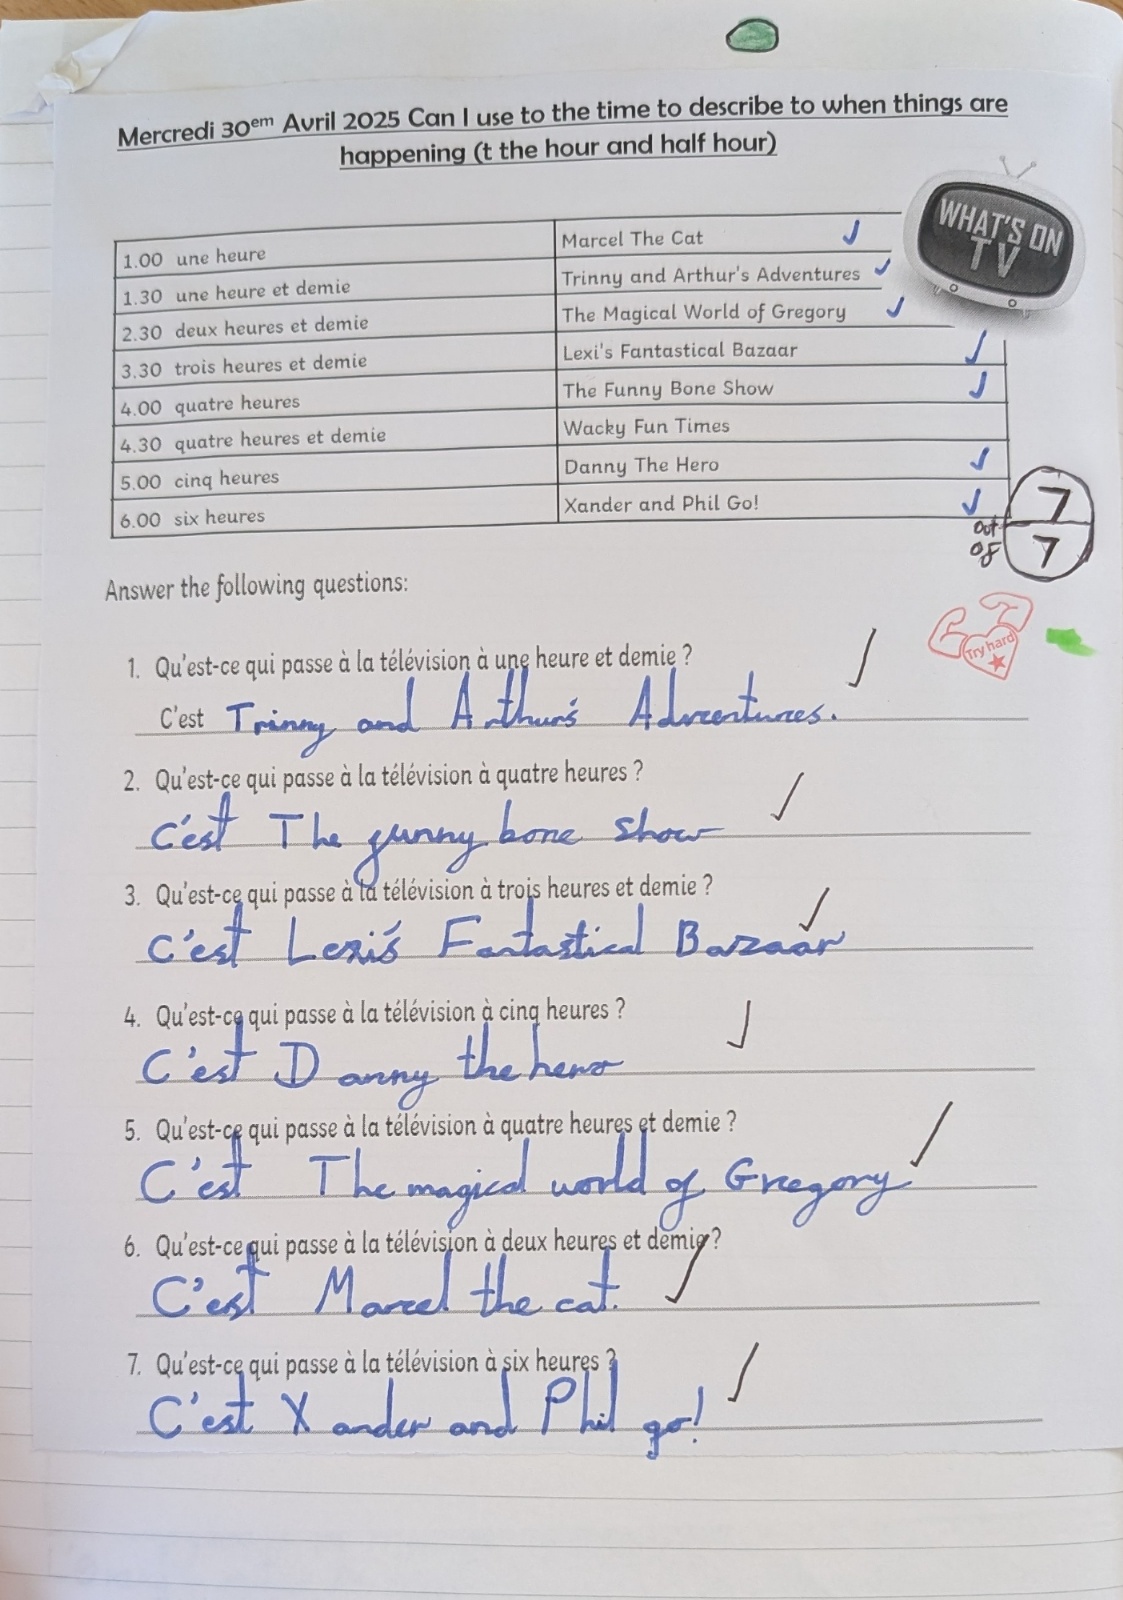 Mercredi 30em Avril 2025 Can I use to the time to describe to when things are
happening (t the hour and half hour)
WHAT'S ON
TV
1.00 une heure Marcel The Cat
1.30 une heure et demie Trinny and Arthur's Adventures
2.30 deux heures et demie The Magical World of Gregory
3.30 trois heures et demie Lexi's Fantastical Bazaar
4.00 quatre heures The Funny Bone Show
4.30 quatre heures et demie Wacky Fun Times
5.00 cinq heures Danny The Hero
6.00 six heures Xander and Phil Go!
7
out
of
7
Answer the following questions:
Try hard
1. Qu'est-ce qui passe à la télévision à une heure et demie ?
C'est Trinny and Arthur's Adventures.
2. Qu'est-ce qui passe à la télévision à quatre heures ?
C'est The funny bone show
3. Qu'est-ce qui passe à la télévision à trois heures et demie ?
C'est Lexi's Fantastical Bazaar
4. Qu'est-ce qui passe à la télévision à cinq heures ?
C'est Danny the hero
5. Qu'est-ce qui passe à la télévision à quatre heures et demie ?
C'est The magical world of Gregory
6. Qu'est-ce qui passe à la télévision à deux heures et demie ?
C'est Marcel the cat.
7. Qu'est-ce qui passe à la télévision à six heures ?
C'est Xander and Phil go!